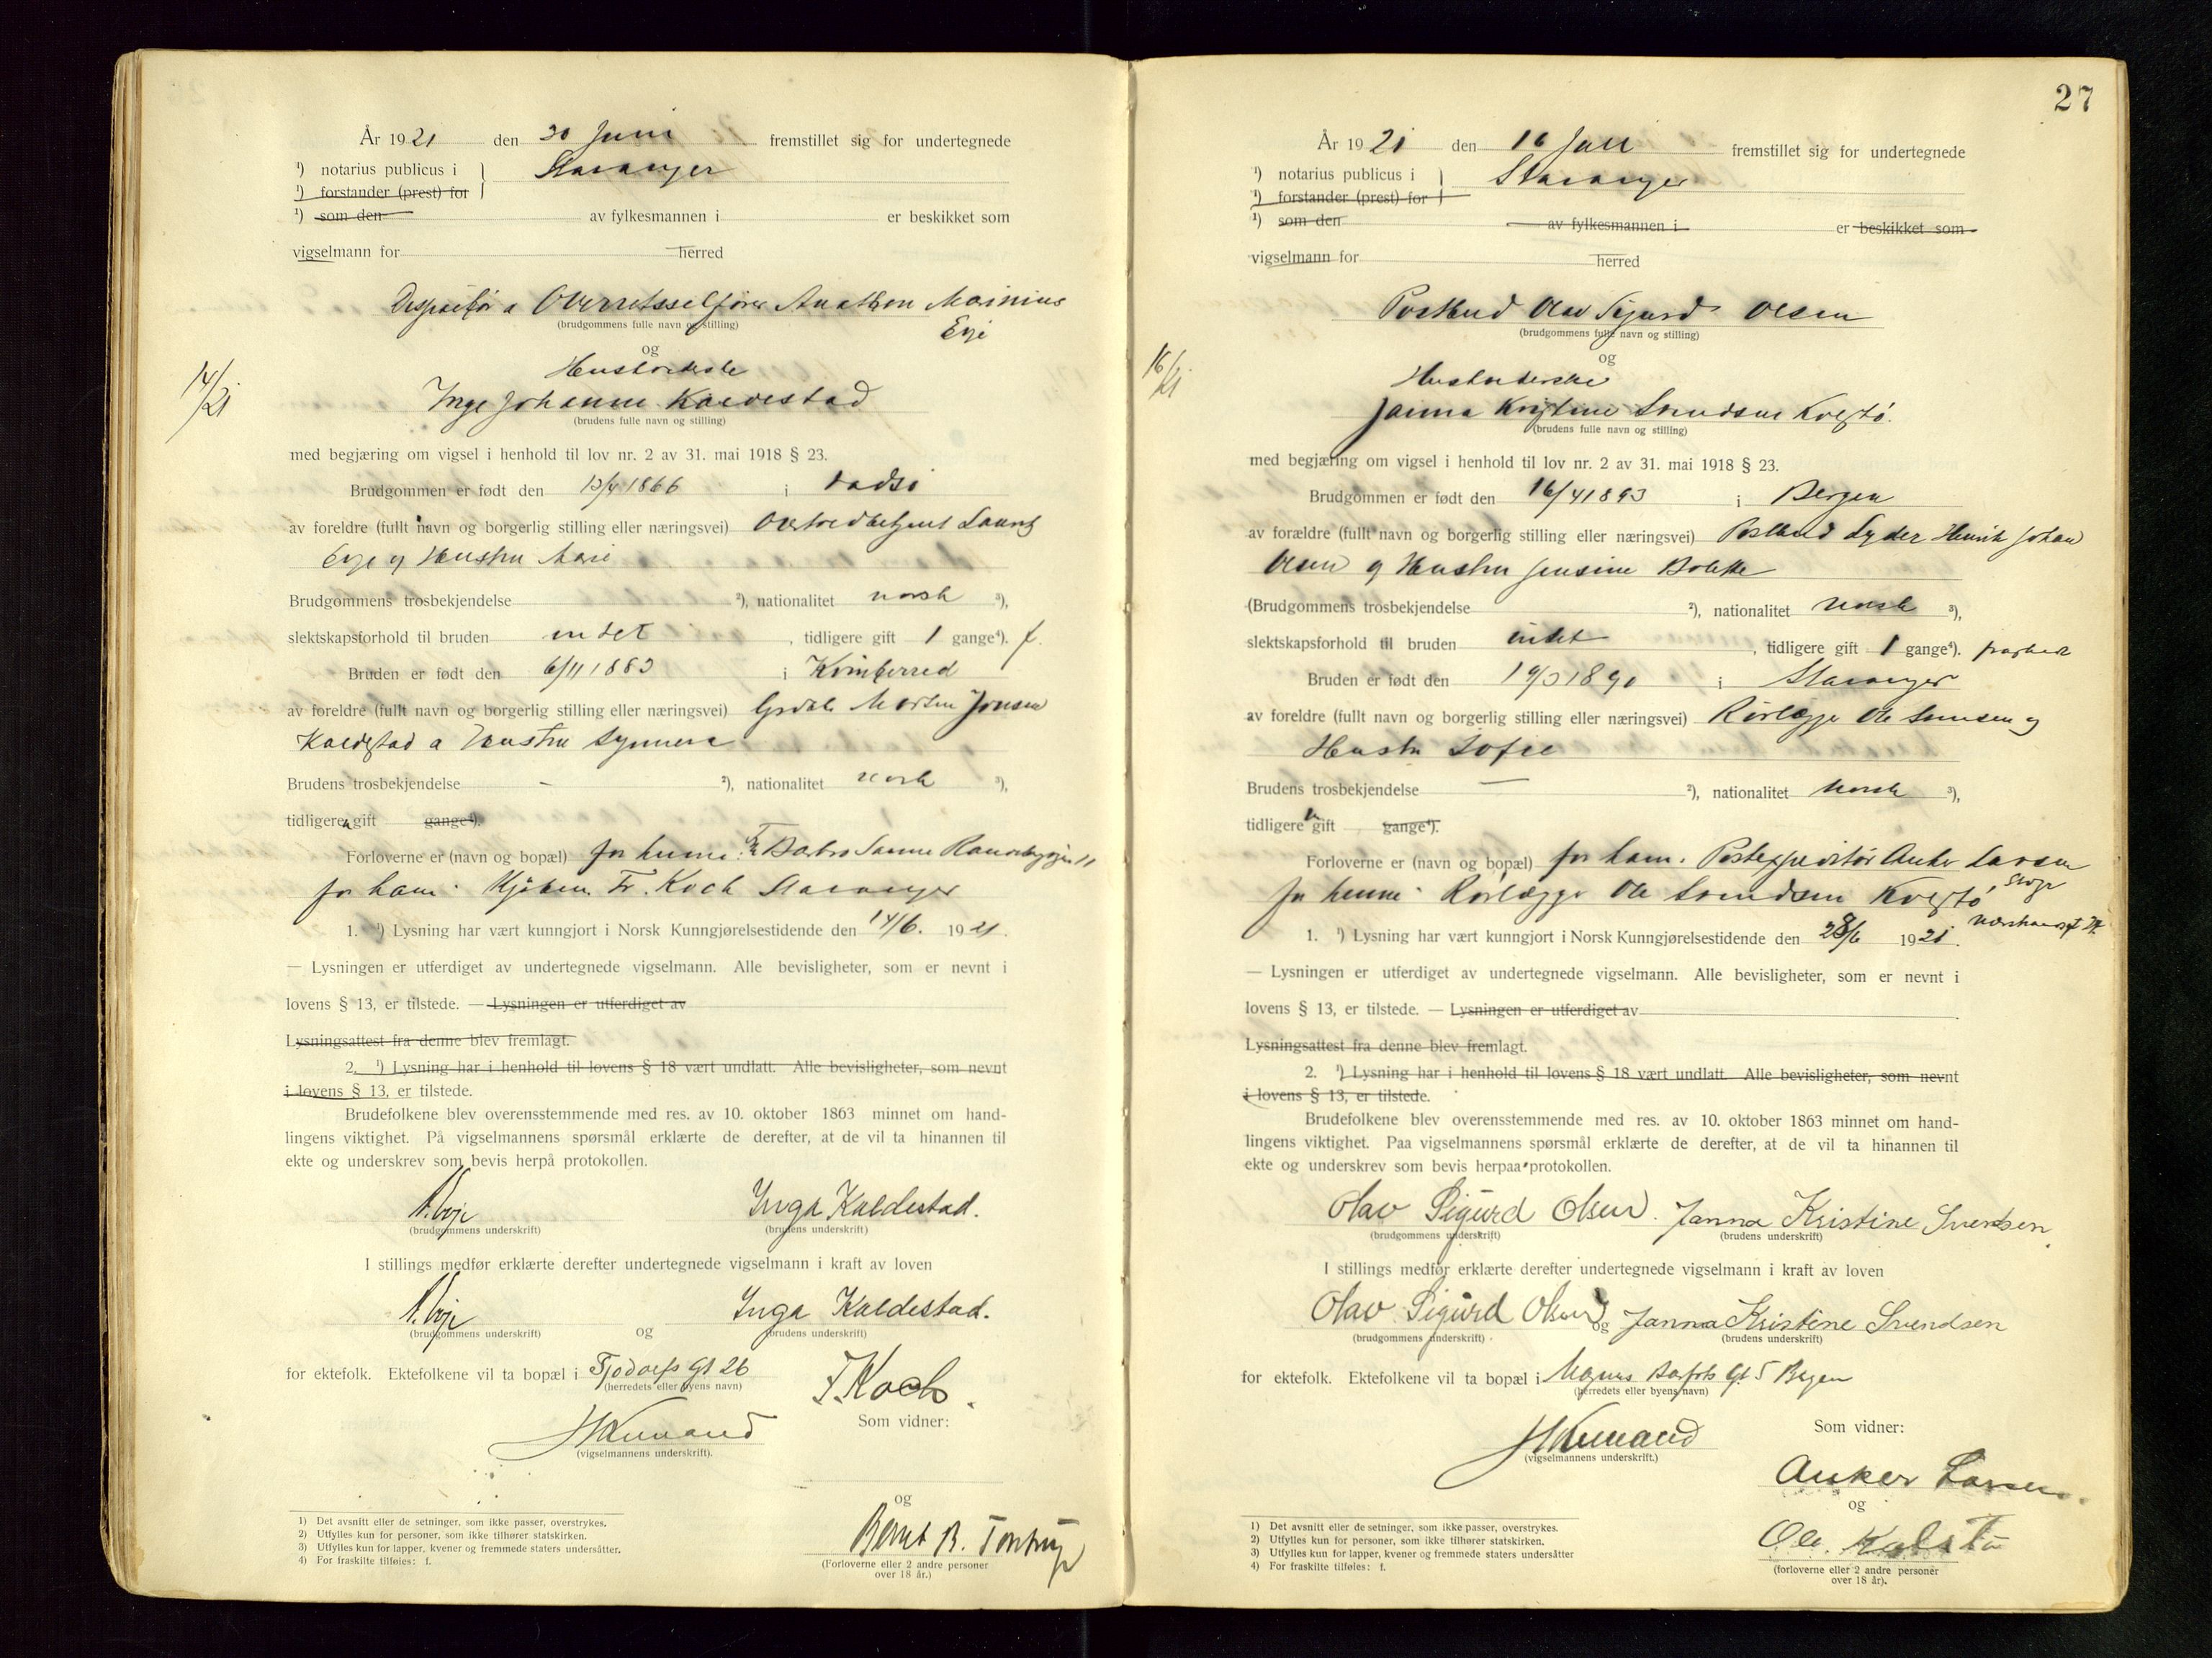 År 1921 den 30 Juni fremstillet sig for undertegnede
¹) notarius publicus i } Stavanger
¹) forstander (prest) for
¹) som den av fylkesmannen i er beskikket som
vigselmann for herred
Overretssakfører Marinius
Erje
(brudgommens fulle navn og stilling)
og
14/21
Johanne Kaldestad
(brudens fulle navn og stilling)
med begjæring om vigsel i henhold til lov nr. 2 av 31. mai 1918 § 23.
Brudgommen er født den 1866 i Vadsø
av foreldre (fullt navn og borgerlig stilling eller næringsvei)
Erje og Hustru
Brudgommens trosbekjendelse ²), nationalitet norsk ³),
slektskapsforhold til bruden intet , tidligere gift 1 gange⁴). f.
Bruden er født den 6/11 1883 i Kvinherred
av foreldre (fullt navn og borgerlig stilling eller næringsvei) Morten Jonsen
Kaldestad a Hustru
Brudens trosbekjendelse - ²), nationalitet norsk ³),
tidligere gift gange⁴).
Forloverne er (navn og bopæl) for henne: 11
for ham: Fr. Koch Stavanger
1. ¹) Lysning har vært kunngjort i Norsk Kunngjørelsestidende den 14/6. 1921.
— Lysningen er utferdiget av undertegnede vigselmann. Alle bevisligheter, som er nevnt i
lovens § 13, er tilstede. — Lysningen er utferdiget av
Lysningsattest fra denne blev fremlagt.
2. ¹) Lysning har i henhold til lovens § 18 vært undlatt. Alle bevisligheter, som nevnt
i lovens § 13, er tilstede.
Brudefolkene blev overensstemmende med res. av 10. oktober 1863 minnet om hand-
lingens viktighet. På vigselmannens spørsmål erklærte de derefter, at de vil ta hinannen til
ekte og underskrev som bevis herpå protokollen.
Inga Kaldestad.
(brudgommens underskrift) (brudens underskrift)
I stillings medfør erklærte derefter undertegnede vigselmann i kraft av loven
Inga Kaldestad.
(brudgommens underskrift) og (brudens underskrift)
for ektefolk. Ektefolkene vil ta bopæl i gt 26
(herredets eller byens navn)
F. Koch.
Som vidner:
(vigselmannens underskrift).
og
Bernt B.
(Forloverne eller 2 andre personer
over 18 år.)
1) Det avsnitt eller de setninger, som ikke passer, overstrykes.
2) Utfylles kun for personer, som ikke tilhører statskirken.
3) Utfylles kun for lapper, kvener og fremmede staters undersåtter.
4) For fraskilte tilføies: f.
27
År 1921 den 16 Juli fremstillet sig for undertegnede
¹) notarius publicus i } Stavanger
¹) forstander (prest) for
¹) som den av fylkesmannen i er beskikket som
vigselmann for herred
Postbud Olav Sigurd Olsen
(brudgommens fulle navn og stilling)
og
16/21
Janna Kristine Svendsen
(brudens fulle navn og stilling)
med begjæring om vigsel i henhold til lov nr. 2 av 31. mai 1918 § 23.
Brudgommen er født den 16/4 1893 i Bergen
av forældre (fullt navn og borgerlig stilling eller næringsvei) Postbud Lyder Henrik Johan
Olsen og Hustru Jensine Bolette
(Brudgommens trosbekjendelse ²), nationalitet norsk ³),
slektskapsforhold til bruden intet , tidligere gift 1 gange⁴).
Bruden er født den 1890 i Stavanger
av foreldre (fullt navn og borgerlig stilling eller næringsvei) Rørlægger Ole Svendsen og
Hustru Sofie
Brudens trosbekjendelse — ²), nationalitet norsk ³),
tidligere gift gange⁴).
Forloverne er (navn og bopæl) for ham: Postexpeditør Anker Larsen
for henne: Rørlægger Ole Svendsen
1. ¹) Lysning har vært kunngjort i Norsk Kunngjørelsestidende den 28/6 1921.
— Lysningen er utferdiget av undertegnede vigselmann. Alle bevisligheter, som er nevnt i
lovens § 13, er tilstede. — Lysningen er utferdiget av
Lysningsattest fra denne blev fremlagt.
2. ¹) Lysning har i henhold til lovens § 18 vært undlatt Alle bevisligheter, som nevnt
i lovens § 13, er tilstede.
Brudefolkene blev overensstemmende med res. av 10. oktober 1863 minnet om hand-
lingens viktighet. Paa vigselmannens spørsmål erklærte de derefter, at de vil ta hinannen til
ekte og underskrev som bevis herpaa protokollen.
Olav Sigurd Olsen. Janna Kristine Svendsen.
(brudgommens underskrift) (brudens underskrift)
I stillings medfør erklærte derefter undertegnede vigselmann i kraft av loven
Olav Sigurd Olsen og Janna Kristine Svendsen
(brudgommens underskrift) (brudens underskrift)
for ektefolk. Ektefolkene vil ta bopæl i Magnus Barfots gt 5 Bergen
(herredets eller byens navn)
Som vidner:
(vigselmannens underskrift.)
Anker Larsen.
og
Ole
(forloverne eller 2 andre personer
over 18 år).
1) Det avsnitt eller de setninger, som ikke passer, overstrykes.
2) Utfylles kun for personer, som ikke tilhører statskirken.
3) Utfylles kun for lapper, kvener og fremmede staters undersåtter
4) For fraskilte tilføies: f.